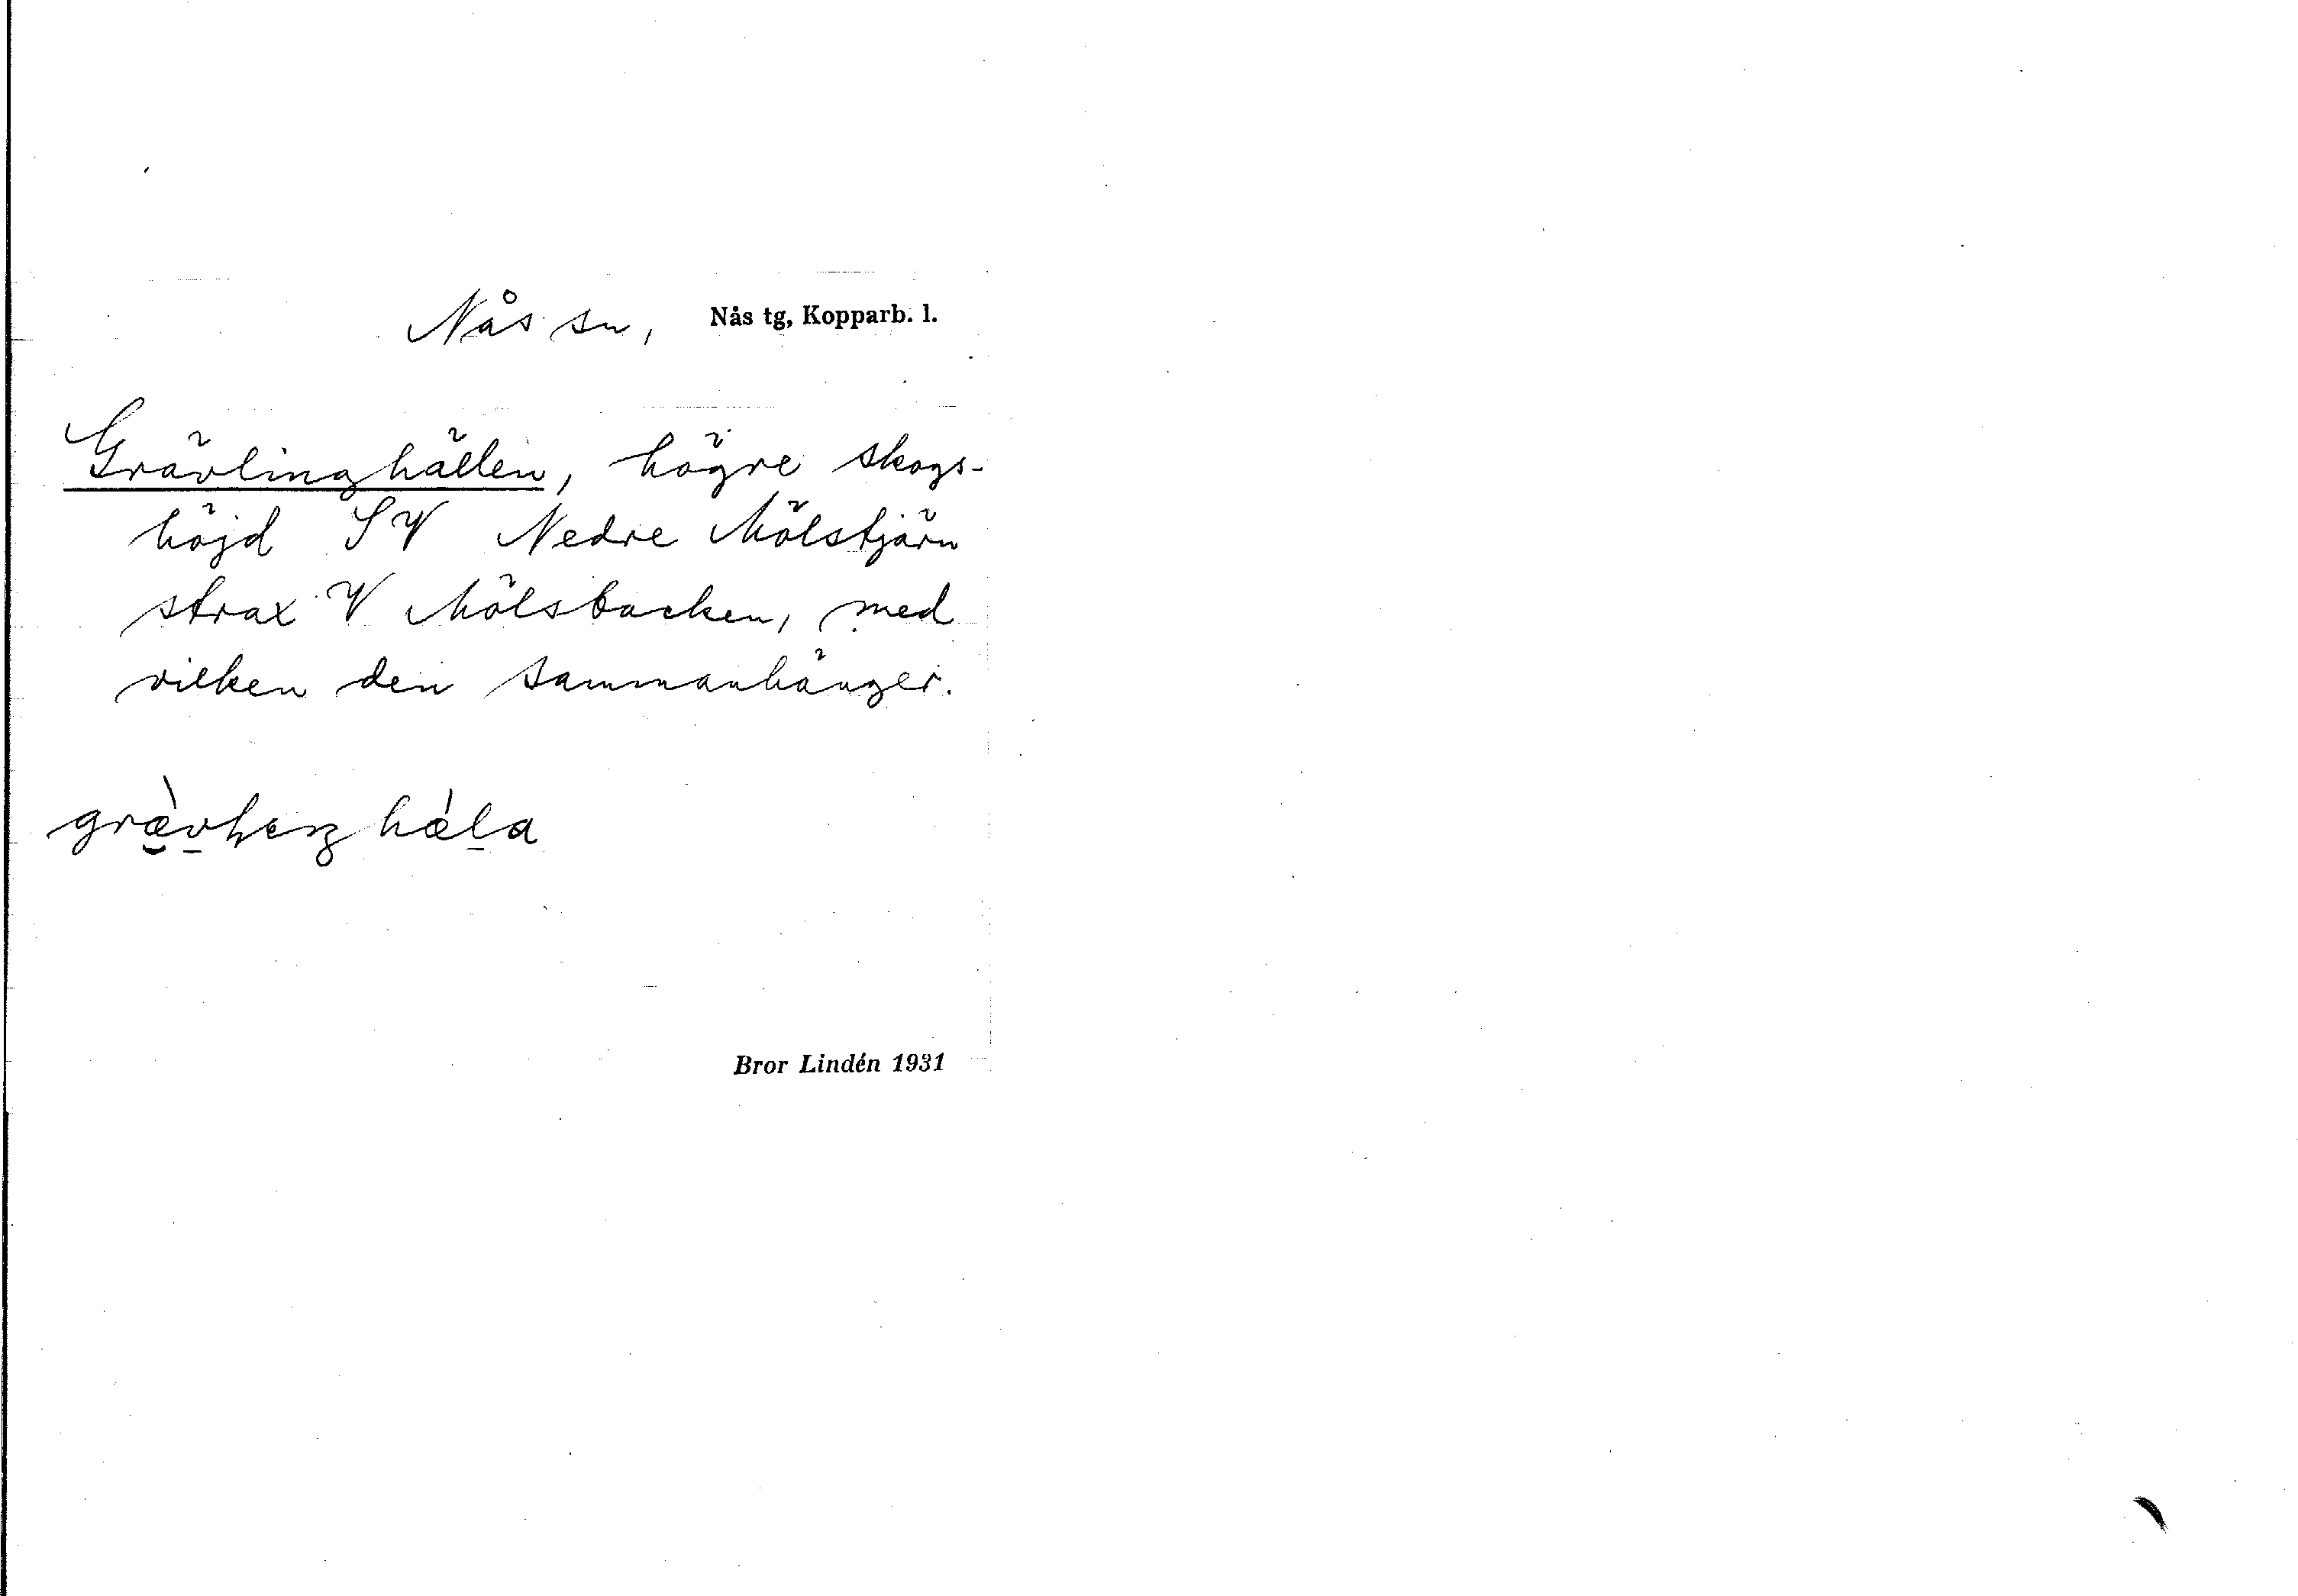 Nås sn, Nås tg, Kopparb. l.
Grävlinghällen, högre skogs-
höjd SV Nedre Mölstjärn
strax V Mölsbacken, med
vilken den sammanhänger.
Bror Lindén 1931